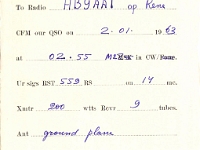 To Radio HB9AAI op Kene
CFM our QSO on 2.01. 1963
at 02.55 in CW/
Ur sigs RST 559 RS on 14 mc.
Xmtr 200 wtts Recvr 9 tubes.
Ant ground plane